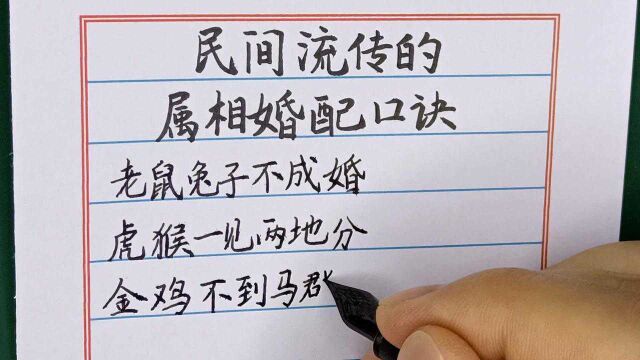 民间流传的
属相婚配口诀
老鼠兔子不成婚
虎猴一见两地分
金鸡不到马